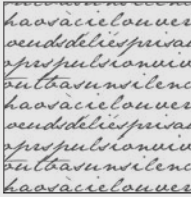 haosàcielouver
oeudsdeliésprisa
oprspulsionviv
outbasunsilenc
haosàcielouver
oeudsdeliésprisa
oprspulsionviv
outbasunsilenc
haosàcielouver